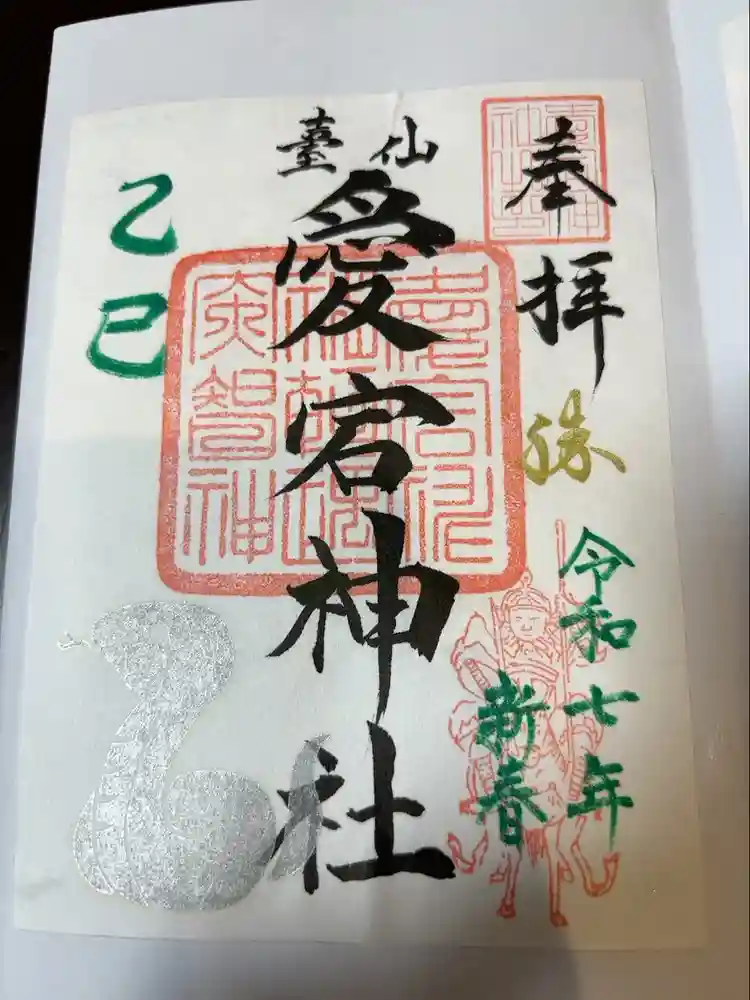 奉拝
勝
令和七年
新春
仙臺
愛宕神社
乙巳